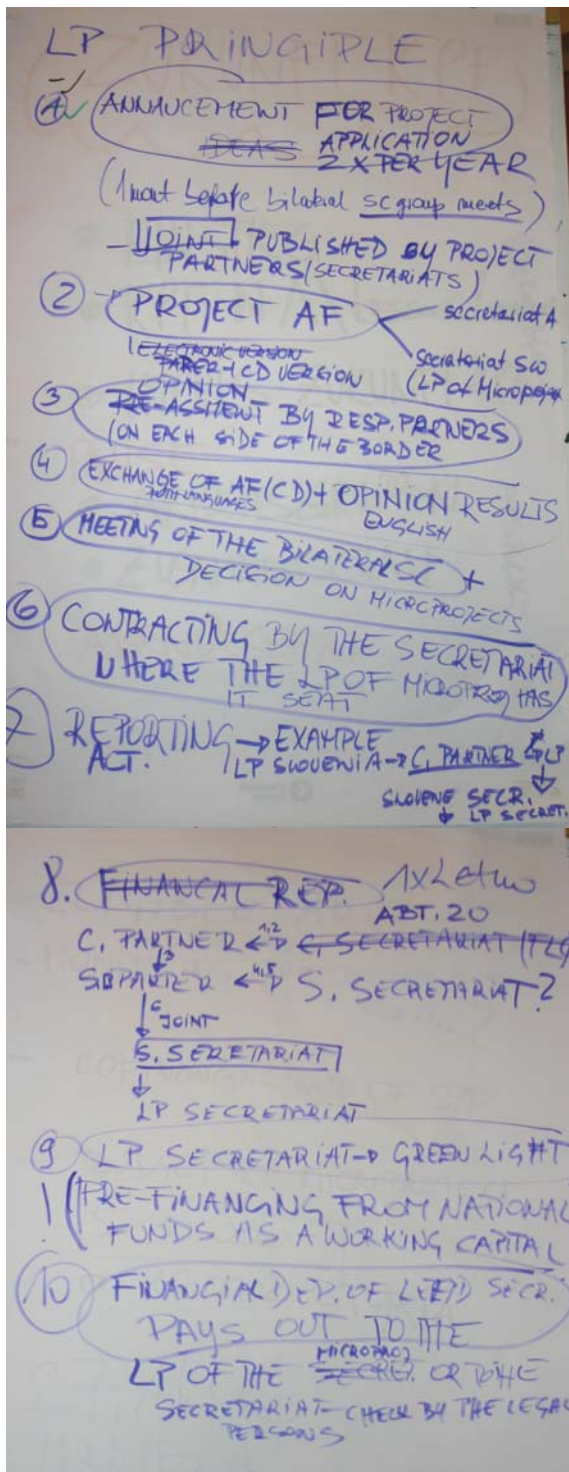 LP PRINCIPLE
1 ANNAUCEMENT FOR PROJECT
IDEAS APPLICATION
2 X PER YEAR
(1 mont before bilateral sc group meets)
- JOINT PUBLISHED BY PROJECT
PARTNERS/SECRETARIATS)
2 - PROJECT AF
secretariat A
ELECTRONIC VERSION
secretariat SLO
PAPER + CD VERSION
(LP of Microproject
OPINION
3 PRE-ASSITEWT BY RESP. PARTNERS
(ON EACH SIDE OF THE BORDER
4 EXCHANGE OF AF (CD) + OPINION RESULTS
BOTH LANGUAGES ENGLISH
5 MEETING OF THE BILATERAL SC +
DECISION ON MICROPROJECTS
6 CONTRACTING BY THE SECRETARIAT
WHERE THE LP OF MICROPROJ HAS
IT SEAT
7 REPORTING → EXAMPLE
ACT. LP SLOVENIA → C. PARTNER LP
SLOVENE SECR.
LP SECRET.
8. FINANCAL REP. 1x Letno
ABT. 20
C. PARTNER 1,2 C. SECRETARIAT (FLC)
3
S. PARTER 4,5 S. SECRETARIAT?
6 JOINT
S. SERETARIAT
LP SECRETARIAT
9 LP SECRETARIAT → GREEN LIGHT
! (PRE-FINANCING FROM NATIONAL
FUNDS AS A WORKING CAPITAL
10 FINANCIAL DEP. OF LEED SECR.
PAYS OUT TO THE
MICROPROJ
LP OF THE SECRE. OR TO THE
SECRETARIAT - CHECK BY THE LEGAL
PERSONS